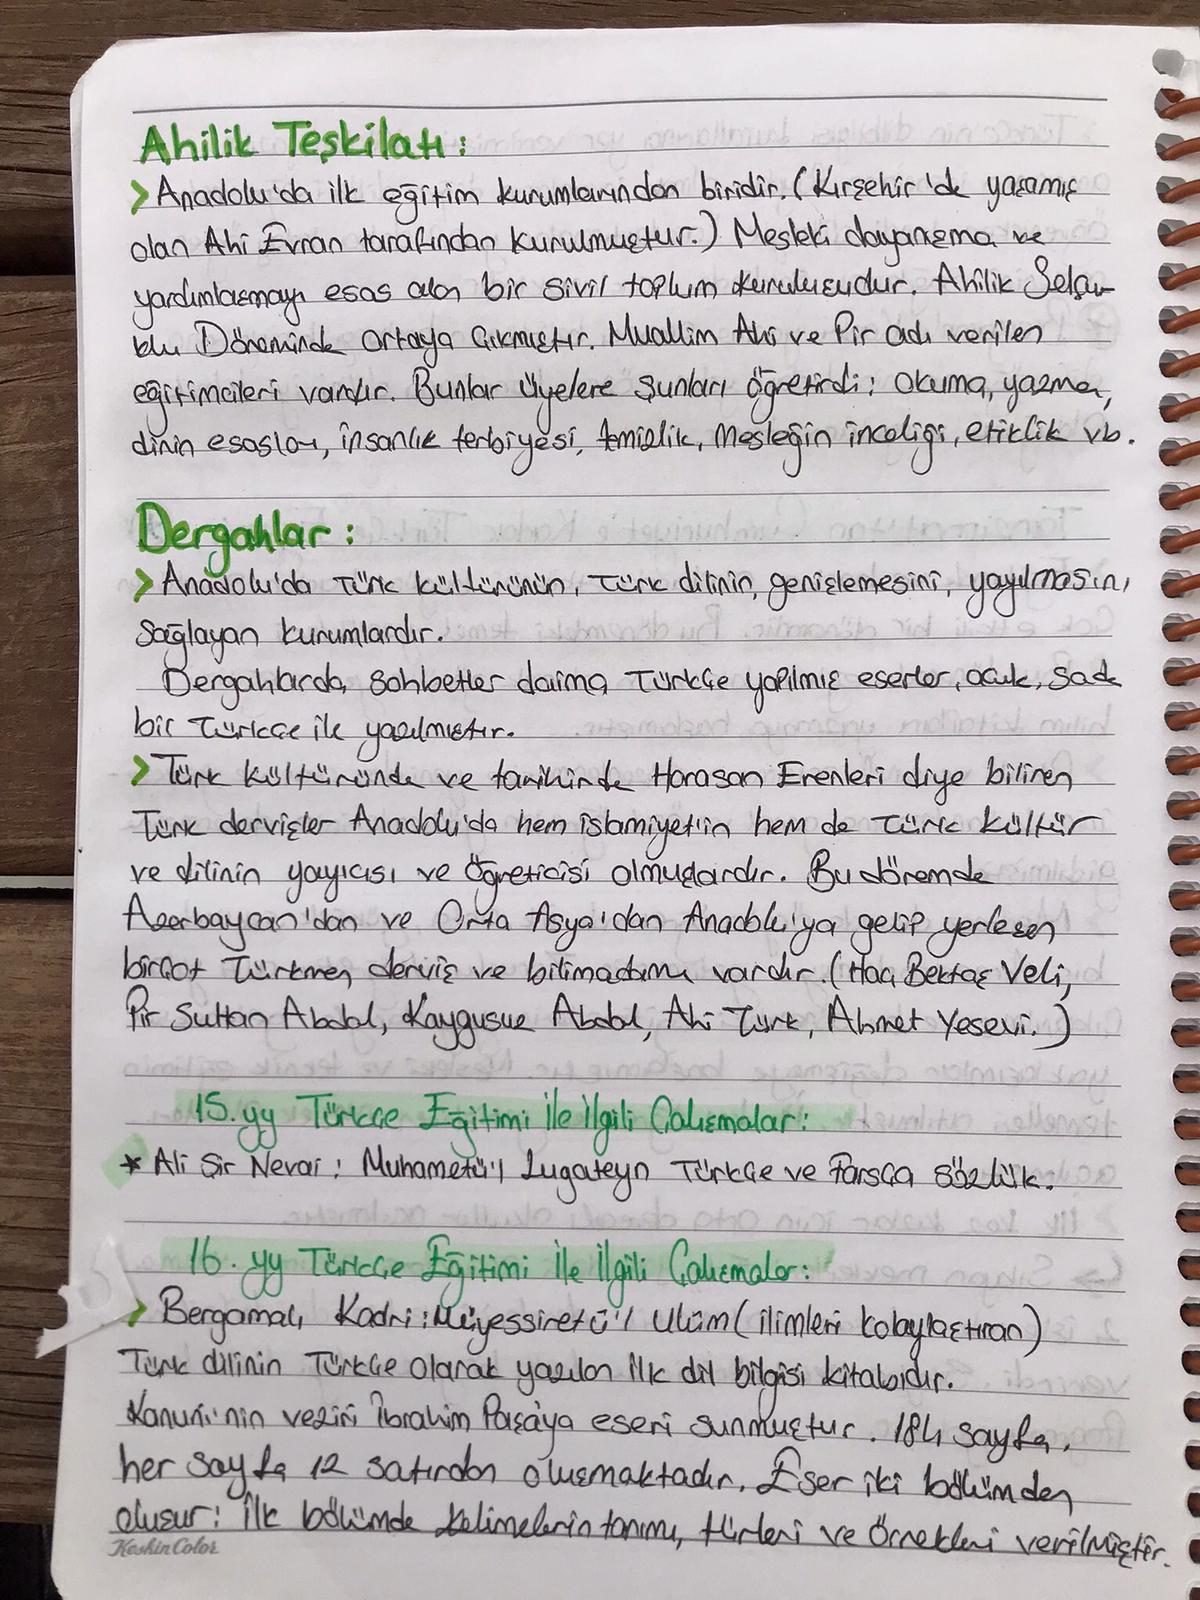 Ahilik Teşkilatı:
> Anadolu'da ilk eğitim kurumlarından biridir. (Kırşehir'de yaşamış
olan Ahi Evran tarafından kurulmuştur.) Mesleki dayanışma ve
yardımlaşmayı esas alan bir sivil toplum kuruluşudur. Ahilik Selçu-
klu Döneminde ortaya çıkmıştır. Muallim Ahi ve Pir adı verilen
eğitimcileri vardır. Bunlar üyelere şunları öğretirdi: okuma, yazma,
dinin esasları, insanlık terbiyesi, temizlik, mesleğin inceliği, etiklik vb.
Dergahlar:
> Anadolu'da Türk kültürünün, Türk dilinin, genişlemesini, yayılmasını
sağlayan kurumlardır.
Dergahlarda, sohbetler daima Türkçe yapılmış eserler, açık, sade
bir Türkçe ile yazılmıştır.
> Türk kültüründe ve tarihinde Horasan Erenleri diye bilinen
Türk dervişler Anadolu'da hem islamiyet'in hem de Türk kültür
ve dilinin yayıcısı ve öğreticisi olmuşlardır. Bu dönemde
Azerbaycan'dan ve Orta Asya'dan Anadolu'ya gelip yerleşen
birçok Türkmen, derviş ve bilimadamı vardır. (Hacı Bektaş Veli,
Pir Sultan Abdal, Kaygusuz Abdal, Ahi Türk, Ahmet Yesevi.)
15.yy Türkçe Eğitimi İle İlgili Çalışmalar:
* Ali Şir Nevai: Muhametü'l Lugateyn Türkçe ve Farsça sözlük.
16.yy Türkçe Eğitimi İle İlgili Çalışmalar:
> Bergamalı Kadri: Müyessiretü'l Ulüm (ilimleri kolaylaştıran)
Türk dilinin Türkçe olarak yazılan ilk dil bilgisi kitabıdır.
Kanuni'nin veziri İbrahim Paşa'ya eseri sunmuştur. 184 sayfa,
her sayfa 12 satırdan oluşmaktadır. Eser iki bölümden
oluşur: İlk bölümde kelimelerin tanımı, türleri ve örnekleri verilmiştir.
KeskinColor